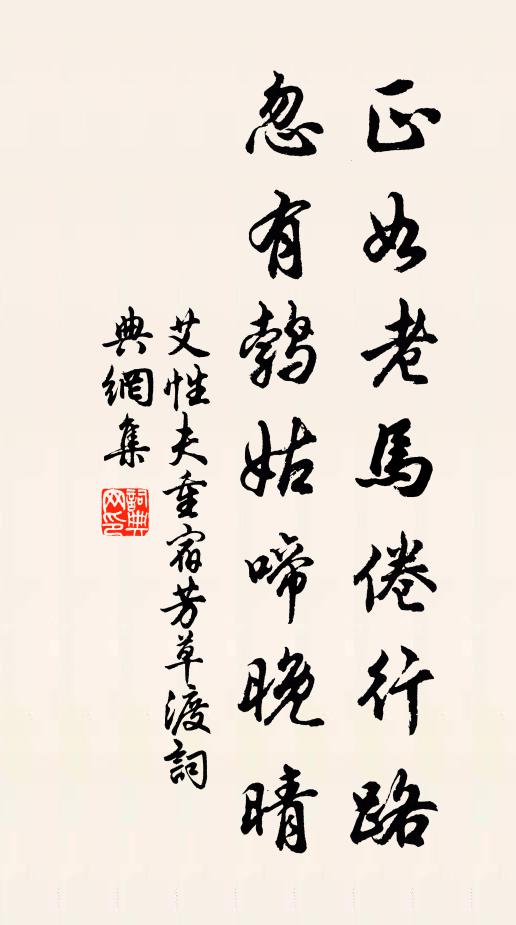 正如老馬倦行路
忽有鵓姑啼晚晴
艾性夫重宿芳草渡詞
典網集
詞典
网印